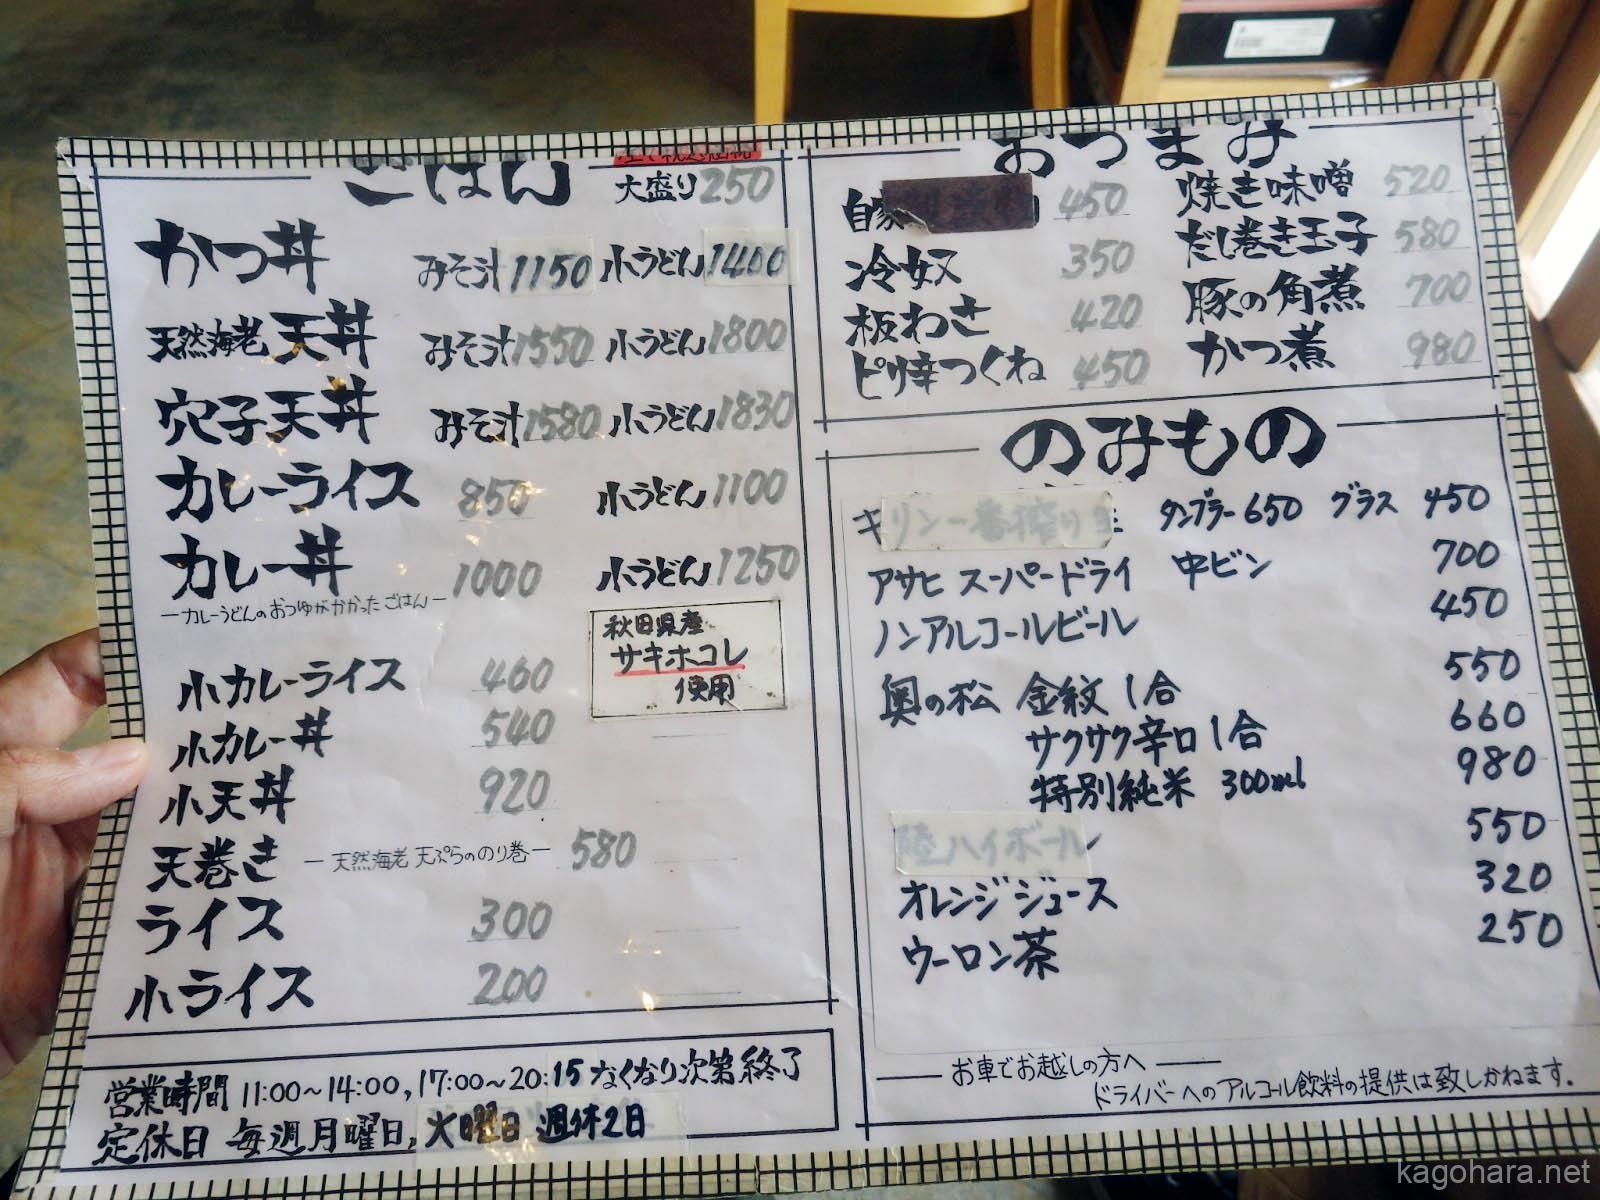 ごはん
大盛り 250
かつ丼 みそ汁 1150 小うどん 1400
天然海老 天丼 みそ汁 1550 小うどん 1800
穴子天丼 みそ汁 1580 小うどん 1830
カレーライス 850 小うどん 1100
カレー丼 1000 小うどん 1250
―カレーうどんのおつゆがかかったごはん―
秋田県産
サキホコレ
使用
小カレーライス 460
小カレー丼 540
小天丼 920
天巻き ―天然海老 天ぷらののり巻― 580
ライス 300
小ライス 200
営業時間 11:00～14:00, 17:00～20:15 なくなり次第終了
定休日 毎週月曜日, 火曜日 週休2日
おつまみ
自家 450
冷奴 350
板わさ 420
ピリ辛つくね 450
焼き味噌 520
だし巻き玉子 580
豚の角煮 700
かつ煮 980
のみもの
キリン一番搾り生 タンブラー 650 グラス 450
アサヒ スーパードライ 中ビン 700
ノンアルコールビール 450
奥の松 金紋 1合 550
サクサク辛口 1合 660
特別純米 300ml 980
陸ハイボール 550
オレンジジュース 320
ウーロン茶 250
お車でお越しの方へ
ドライバーへのアルコール飲料の提供は致しかねます。
kagohara.net